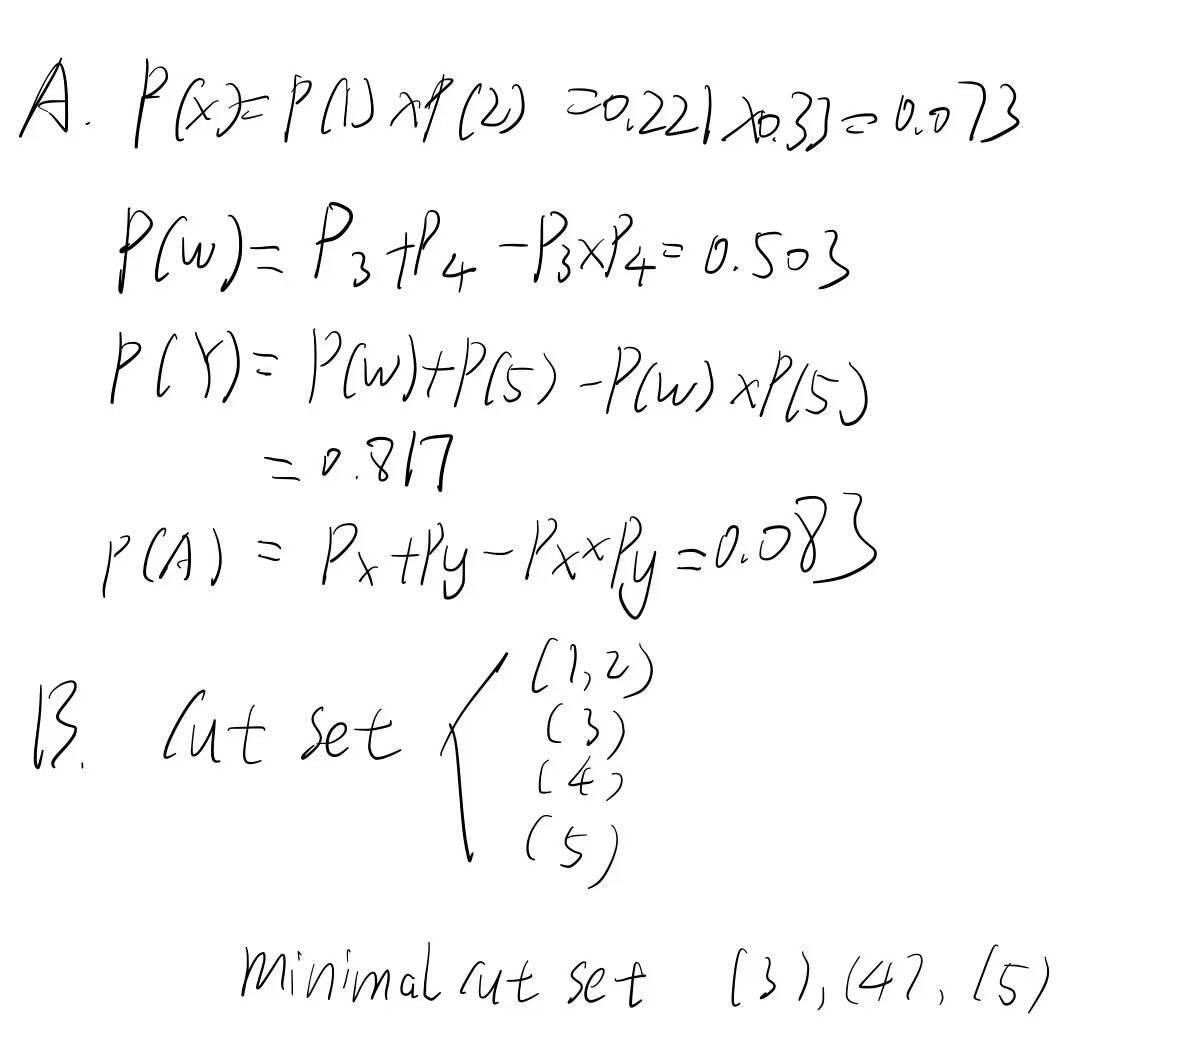 A. P(x)= P(1) x P(2) =0.221 x0.33=0.073
P(w)= P3+P4 -P3xP4= 0.503
P(Y)= P(w)+P(5) -P(w) xP(5)
= 0.817
P(A) = Px+Py-PxxPy=0.083
B. Cut set (1,2)
(3)
(4)
(5)
minimal cut set (3), (4), (5)